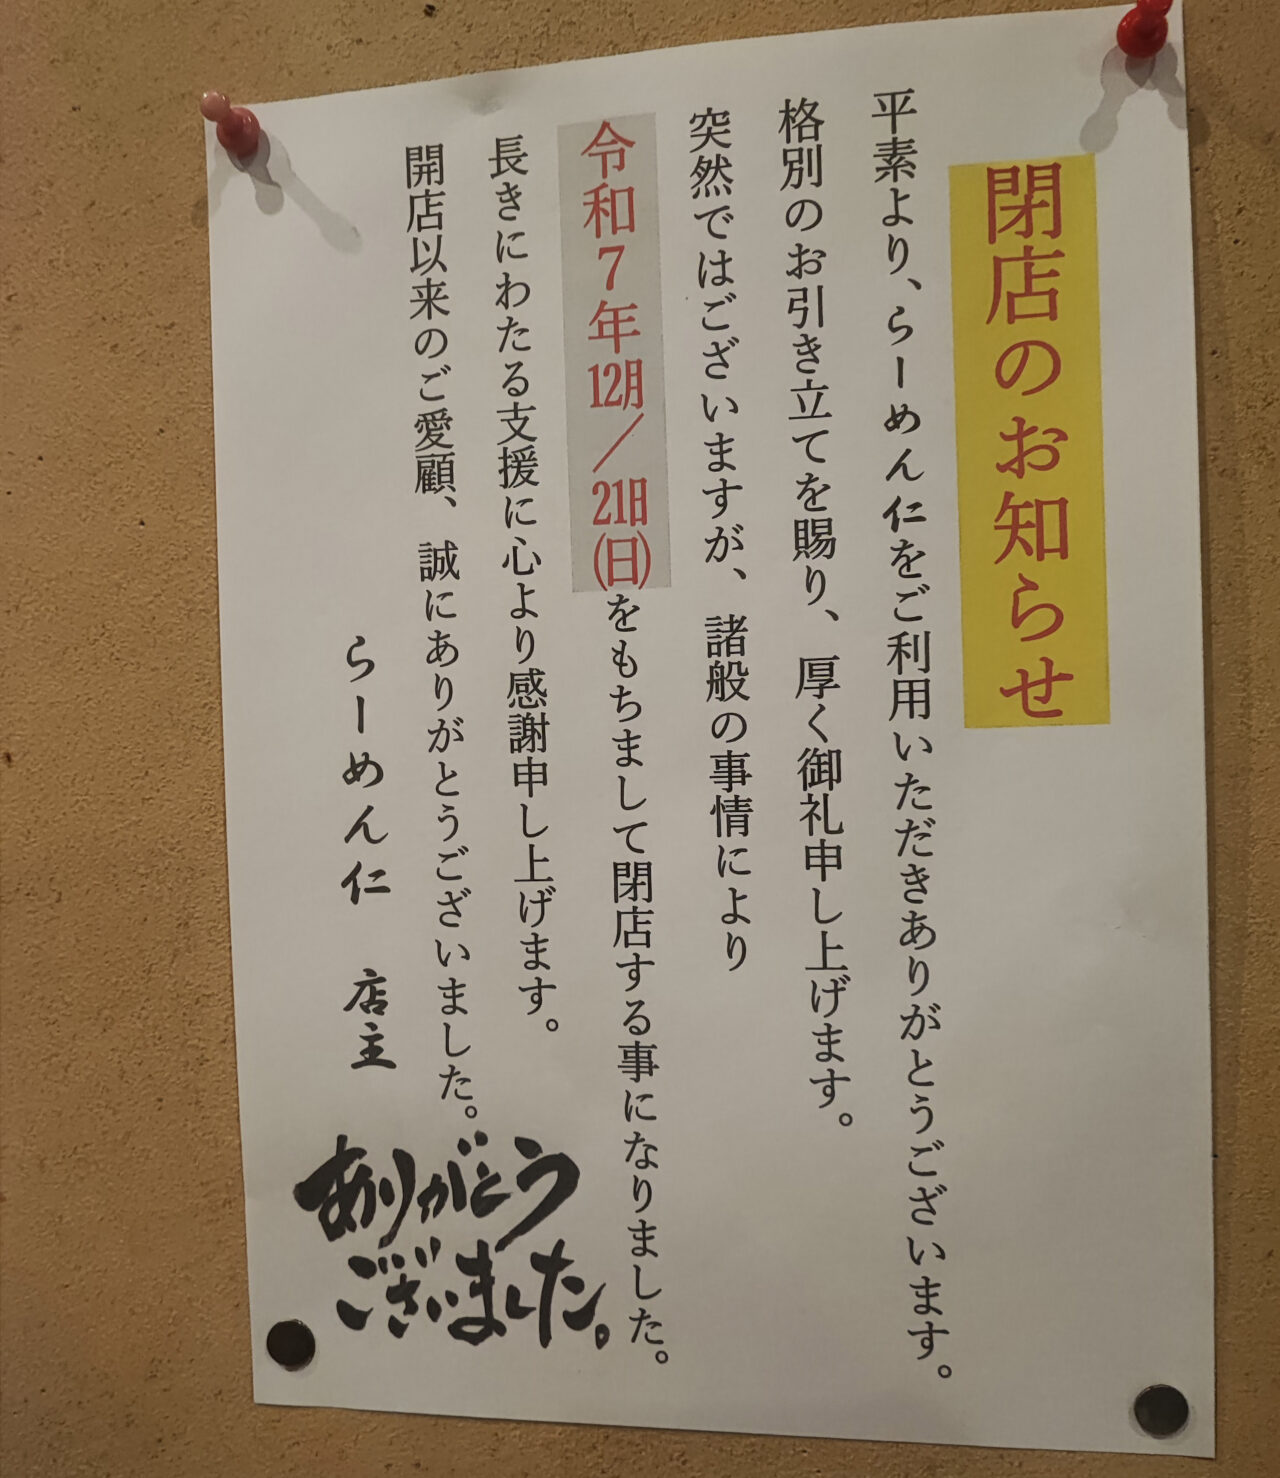 閉店のお知らせ
平素より、らーめん仁をご利用いただきありがとうございます。
格別のお引き立てを賜り、厚く御礼申し上げます。
突然ではございますが、諸般の事情により
令和７年12月／21日(日)をもちまして閉店する事になりました。
長きにわたる支援に心より感謝申し上げます。
開店以来のご愛顧、誠にありがとうございました。
らーめん仁　店主
ありがとう
ございました。